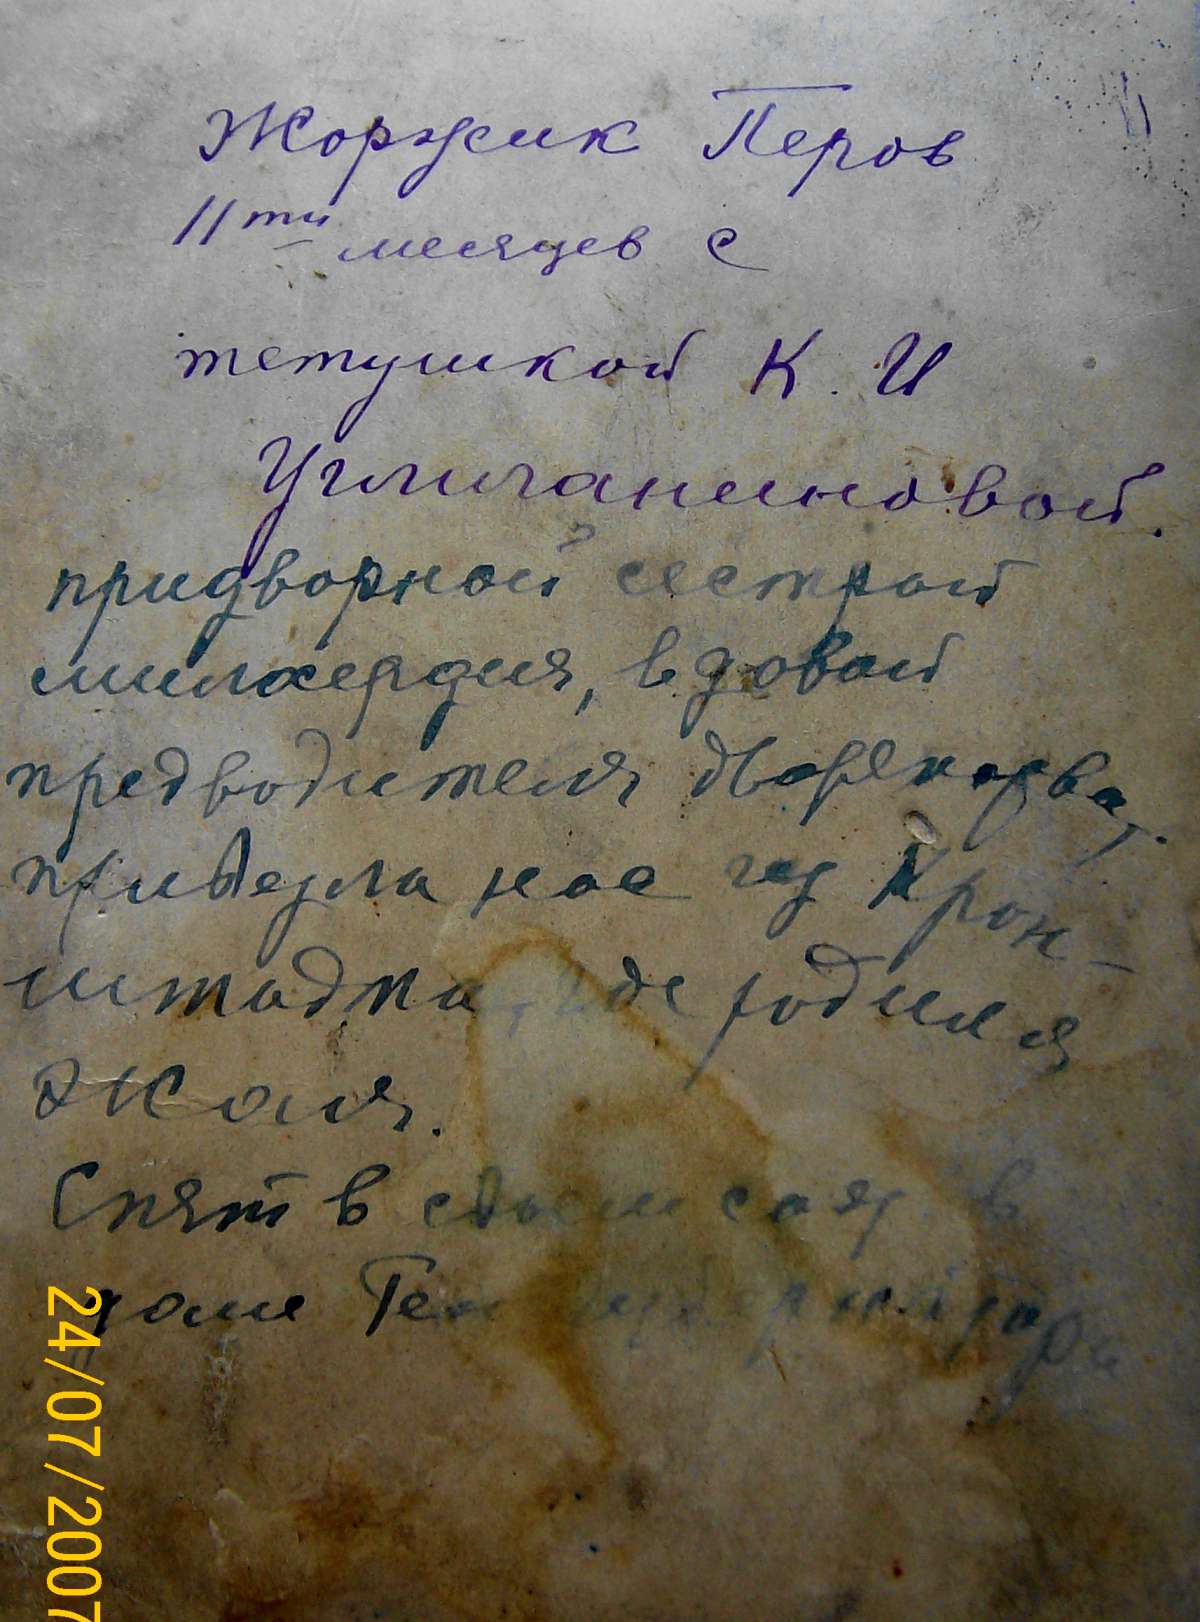 Жоржик Перов
11ти месяцев с
тетушкой К. И
Угличаниновой.
придворной сестрой
милосердия, вдовой
предводителя дворянства,
привезла нас из Крон-
штадта, где родился
Жоля.
Снят в
доме
24/07/2007